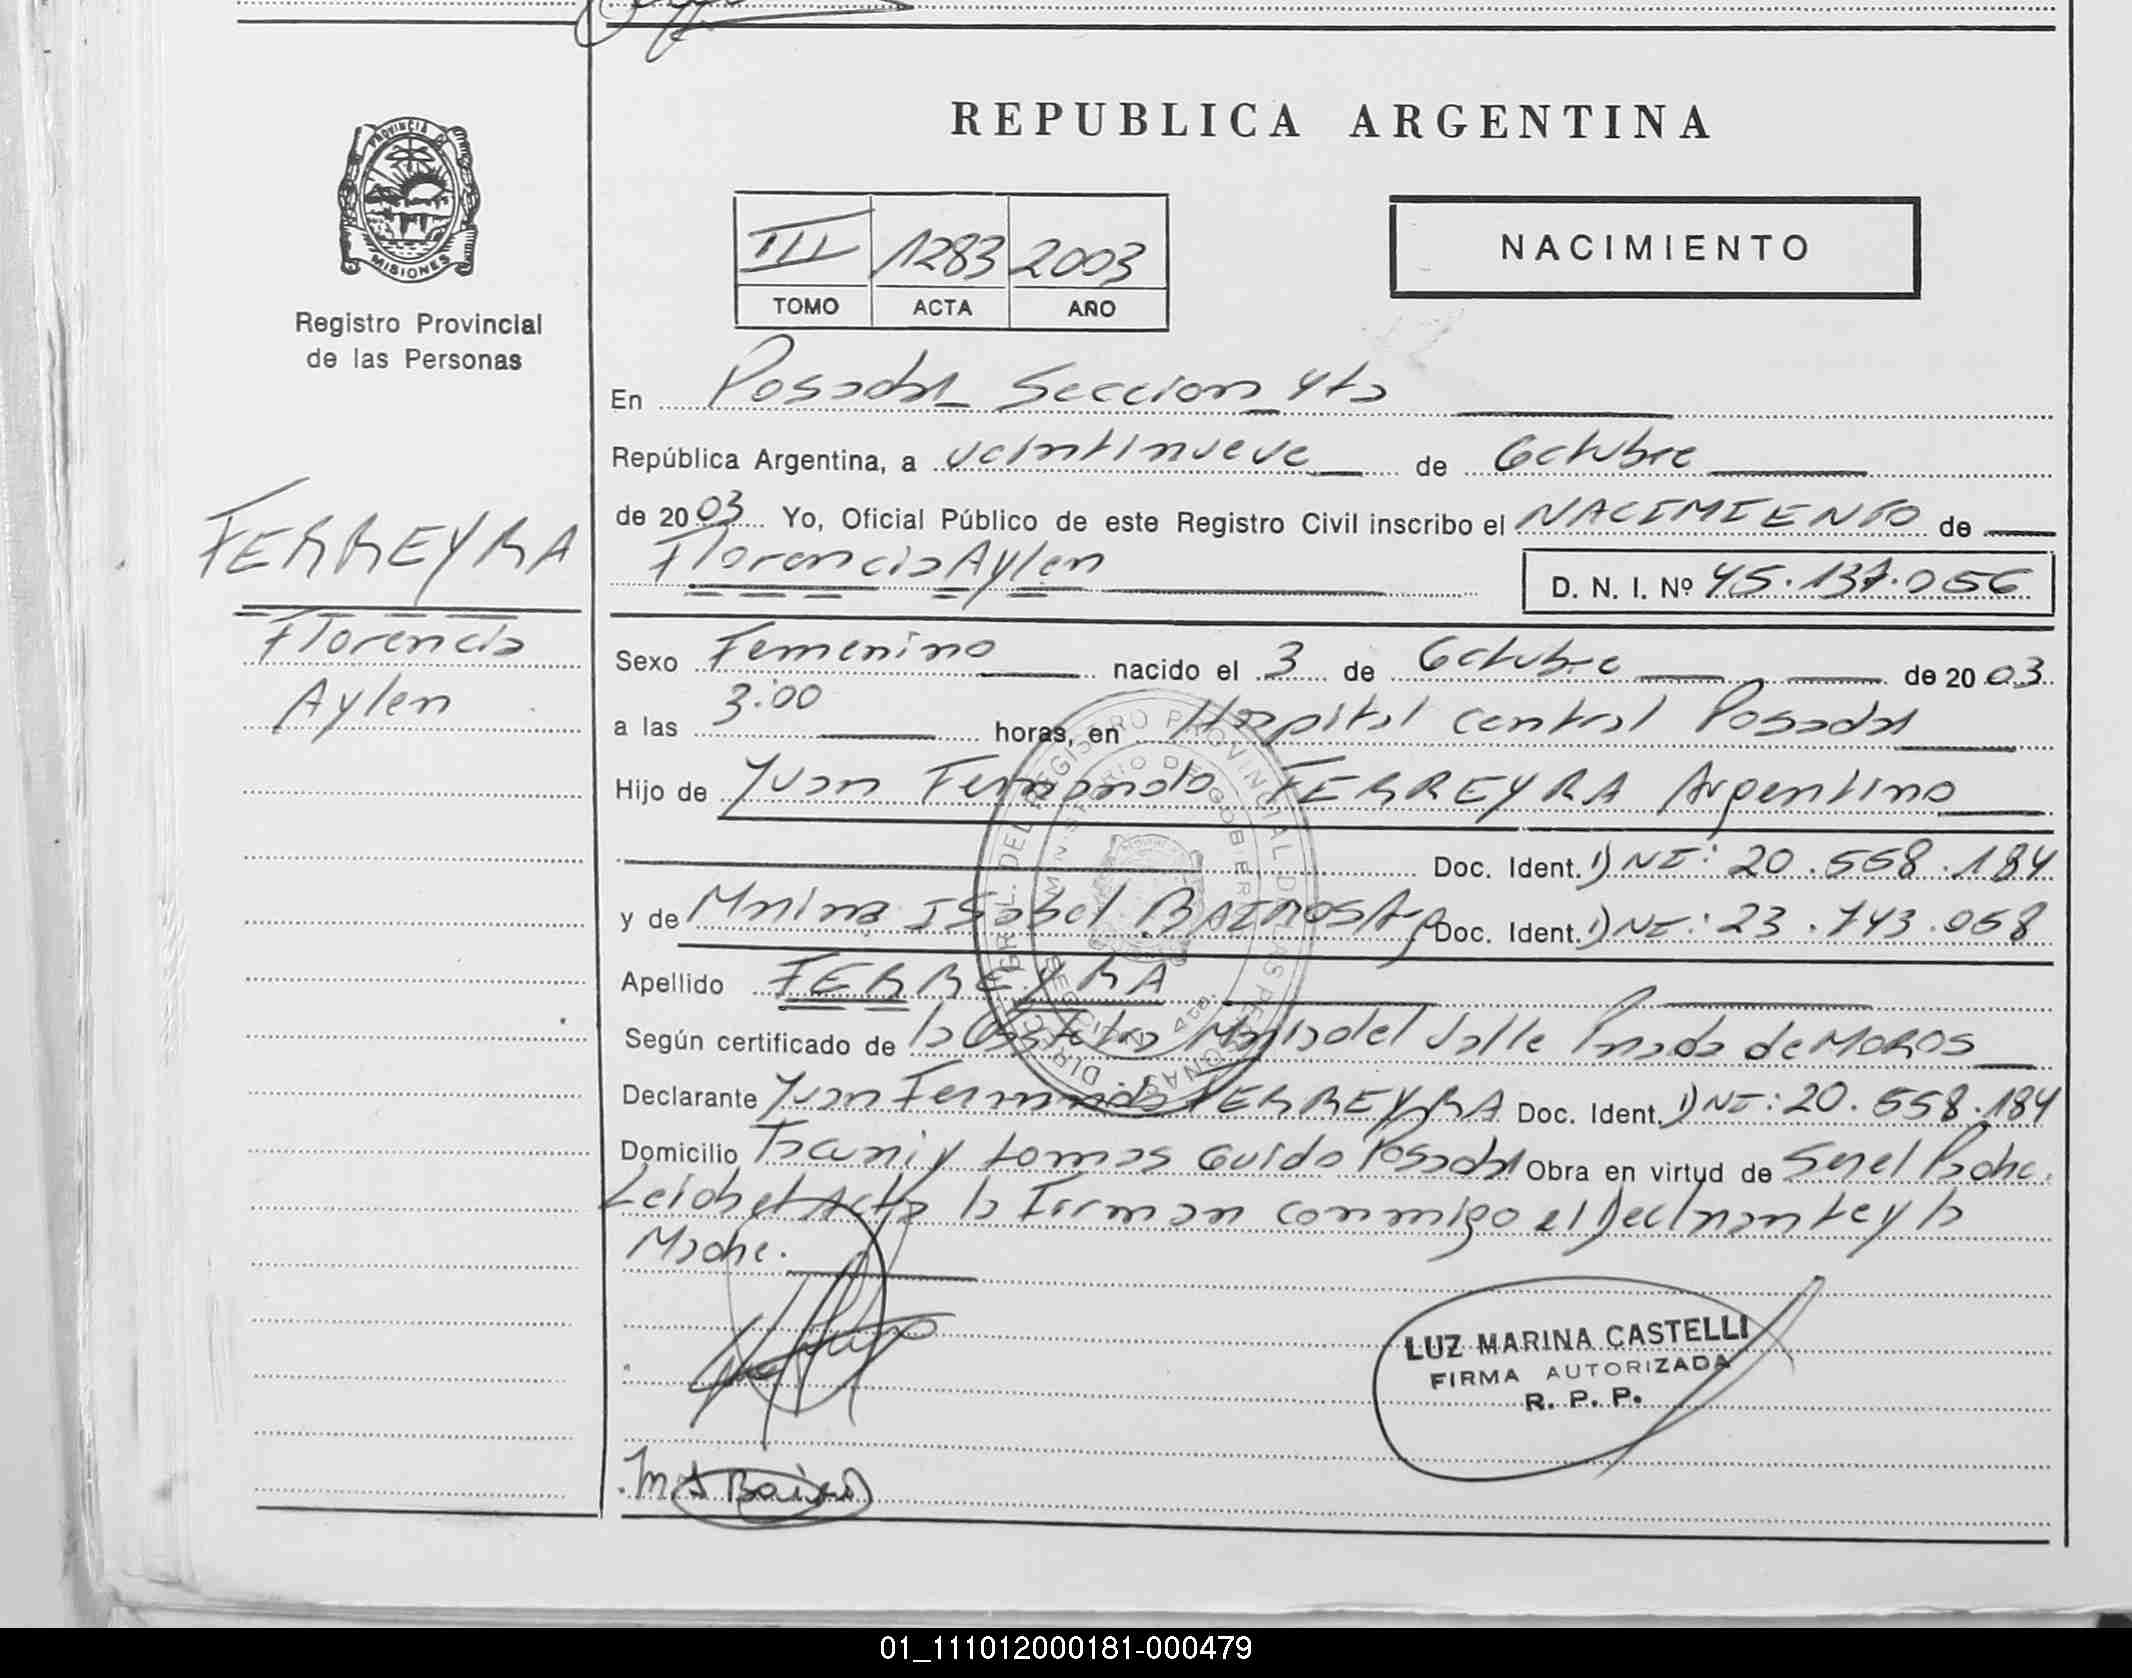 REPUBLICA ARGENTINA
PROVINCIA D
MISIONES
Registro Provincial
de las Personas
III 1283 2003
TOMO ACTA AÑO
NACIMIENTO
En Posadas Seccion 4ta
República Argentina, a veintinueve de Octubre
de 2003 Yo, Oficial Público de este Registro Civil inscribo el NACIMIENTO de
Florencia Aylen
D. N. I. Nº 45.137.056
FERREYRA
Florencia
Aylen
Sexo Femenino nacido el 3 de Octubre de 2003
a las 3:00 horas, en Hospital Central Posadas
Hijo de Juan Fernando FERREYRA Argentino
Doc. Ident. DNI: 20.558.184
y de Isabel Doc. Ident. DNI: 23.743.058
Apellido FERREYRA
Según certificado de la Obstetra Maria del Valle de MOROS
Declarante Juan Fernando FERREYRA Doc. Ident. DNI: 20.558.184
Domicilio y Tomas Guido Posadas Obra en virtud de Ser el Padre.
Leida el Acta la Firman conmigo el Declarante y la
Madre.
DIRECC. GRAL. DEL REGISTRO PROVINCIAL DE LAS PERSONAS
MINISTERIO DE GOBIERNO
SECCION 4ta.
LUZ MARINA CASTELLI
FIRMA AUTORIZADA
R. P. P.
01_111012000181-000479